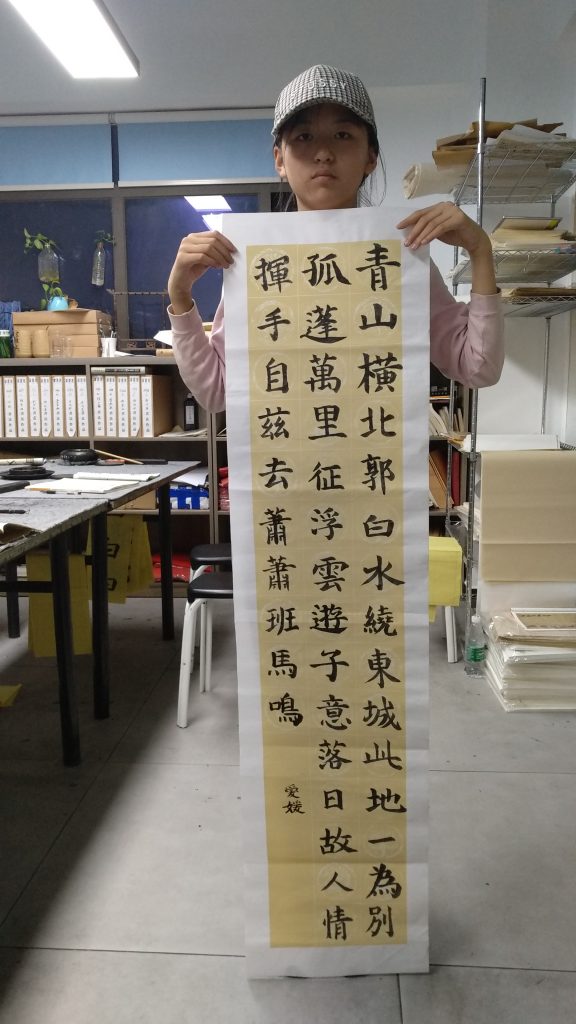 青山橫北郭白水繞東城此地一為別
孤蓬萬里征浮雲遊子意落日故人情
揮手自茲去蕭蕭班馬鳴
愛媛